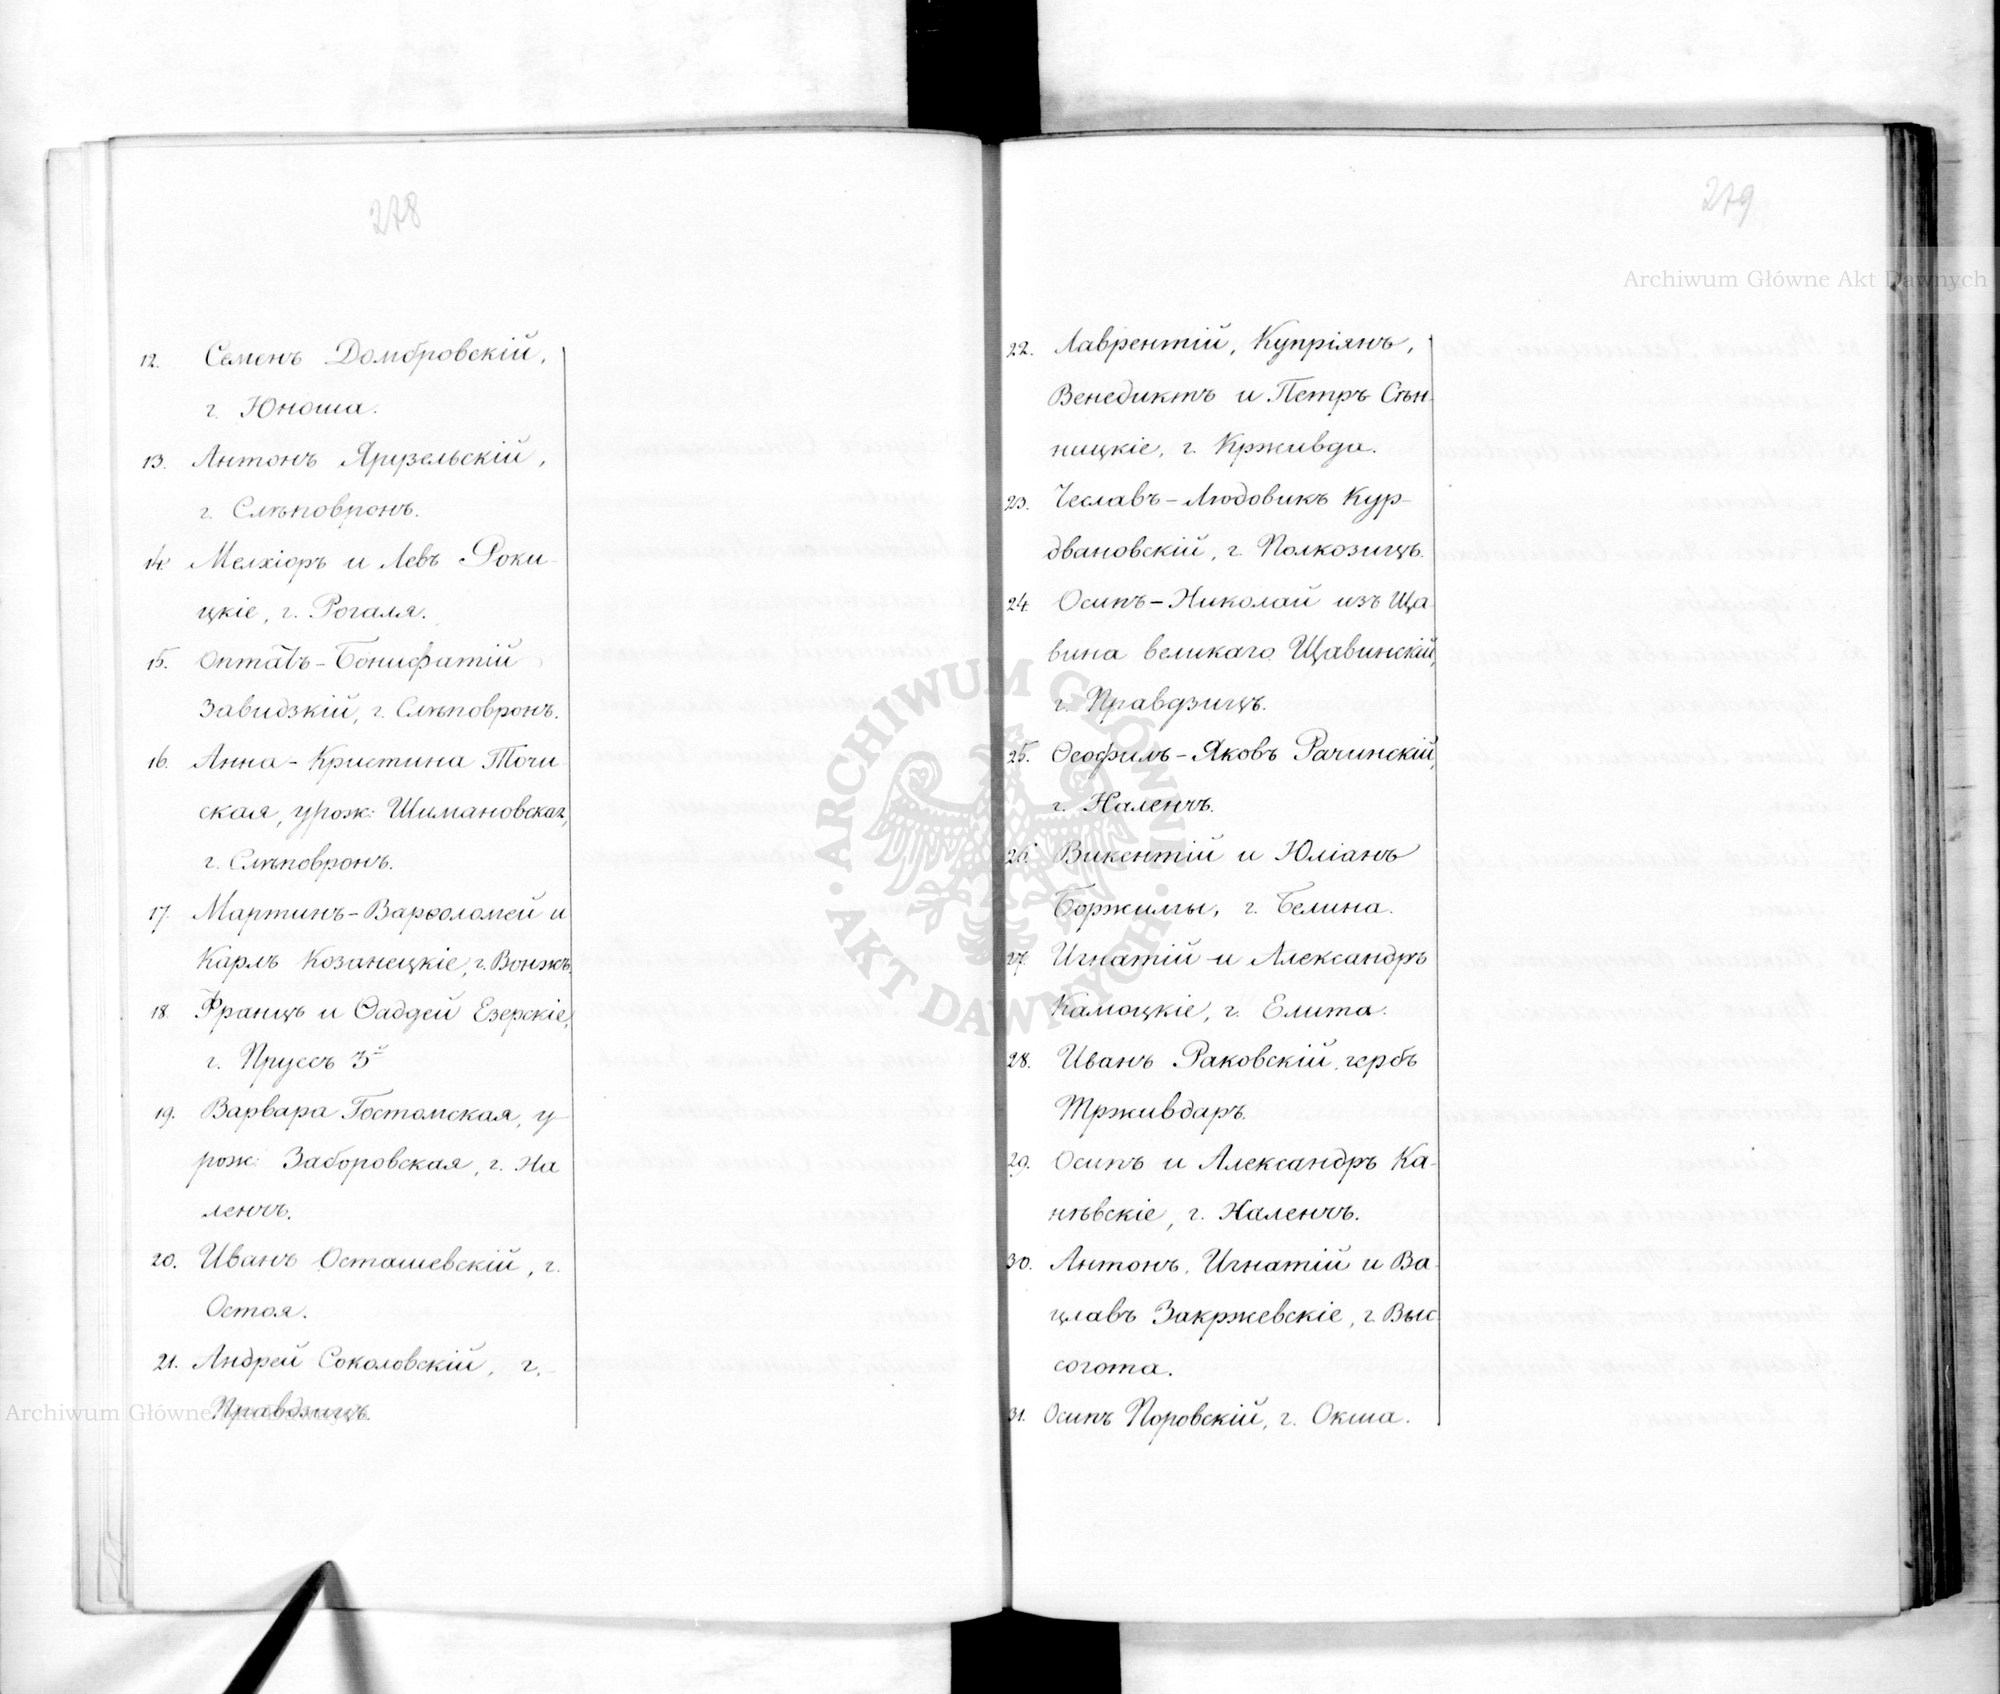 278
12. Семенъ Домбровскій,
г. Юноша.
13. Антонъ Ярузельскій,
г. Слѣповронъ.
14. Мелхіоръ и Левъ Роки-
цкіе, г. Рогаля.
15. Оптатъ-Бонифатій
Завидзкій, г. Слѣповронъ.
16. Анна-Кристина Точи-
ская, урож: Шимановская,
г. Слѣповронъ.
17. Мартинъ-Варѳоломей и
Карлъ Козанецкіе, г. Вонжъ.
18. Францъ и Ѳаддей Езерскіе,
г. Пруссъ 3й
19. Варвара Гостомская, у-
рож: Заборовская, г. На
ленчъ.
20. Иванъ Осташевскій, г.
Остоя.
21. Андрей Соколовскій, г.
Правдзицъ.
279
22. Лаврентій, Купріянъ,
Венедиктъ и Петръ Сѣн-
ницкіе, г. Крживда.
23. Чеславъ-Людовикъ Кур-
двановскій, г. Полкозицъ.
24. Осипъ-Николай изъ Ща-
вина великаго Щавинскій,
г. Правдзицъ.
25. Ѳеофилъ-Яковъ Рачинскій,
г. Наленчъ.
26. Викентій и Юліанъ
Боржимы, г. Белина.
27. Игнатій и Александръ
Камоцкіе, г. Елита.
28. Иванъ Раковскій, гербъ
Трживдаръ.
29. Осипъ и Александръ Ка-
нѣвскіе, г. Наленчъ.
30. Антонъ, Игнатій и Ва-
цлавъ Закржевскіе, г. Выс-
согота.
31. Осипъ Поровскій, г. Окша.
Archiwum Główne Akt Dawnych
ARCHIWUM GŁÓWNE AKT DAWNYCH
Archiwum Główne